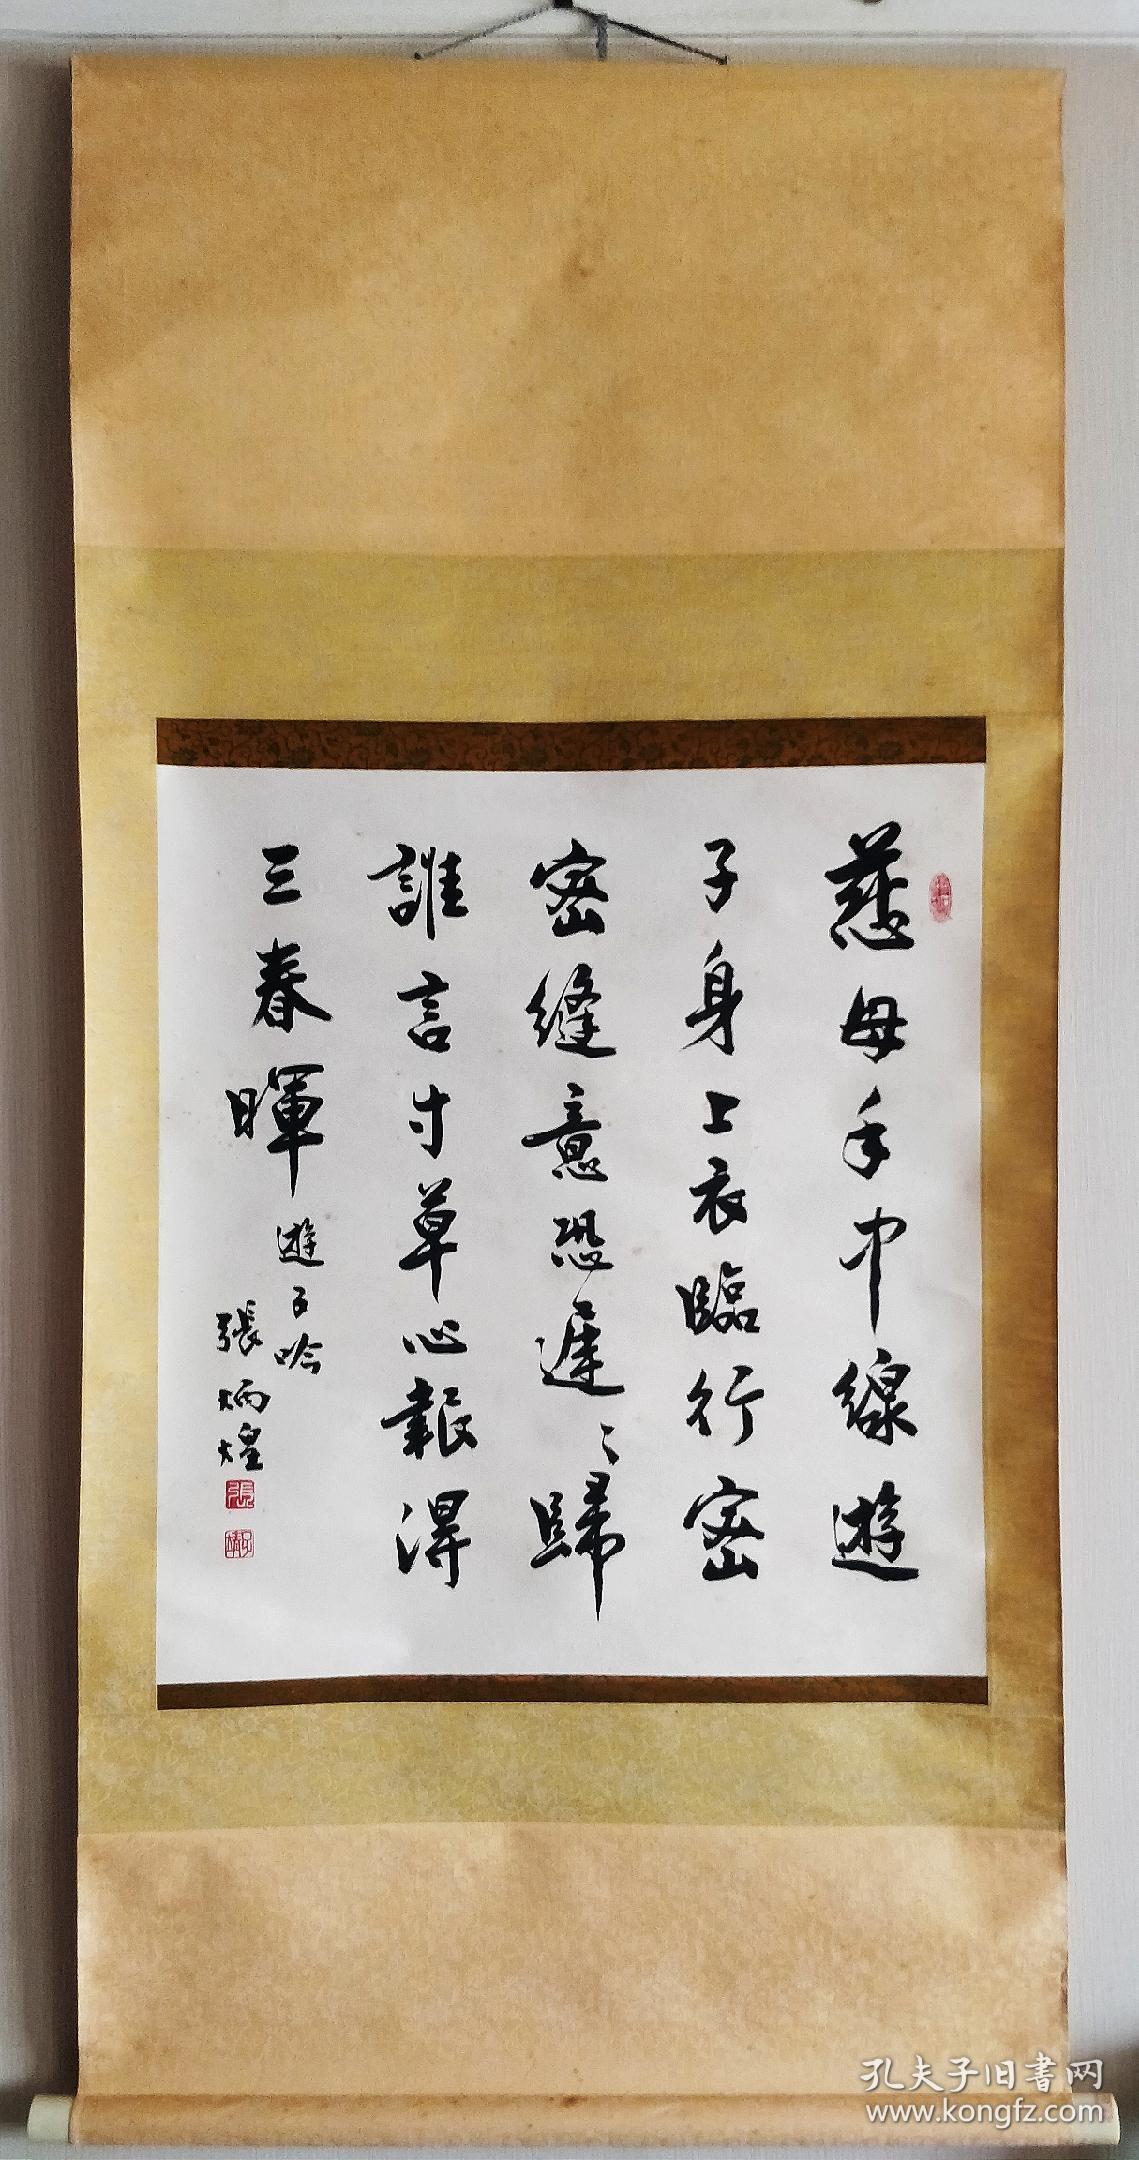 慈母手中線遊
子身上衣臨行密
密縫意恐遲〻歸
誰言寸草心報得
三春暉
遊子吟
張炳煌
孔夫子旧書网
www.kongfz.com